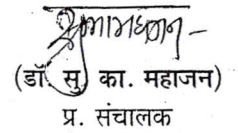 (डॉ. सु. का. महाजन)
प्र. संचालक